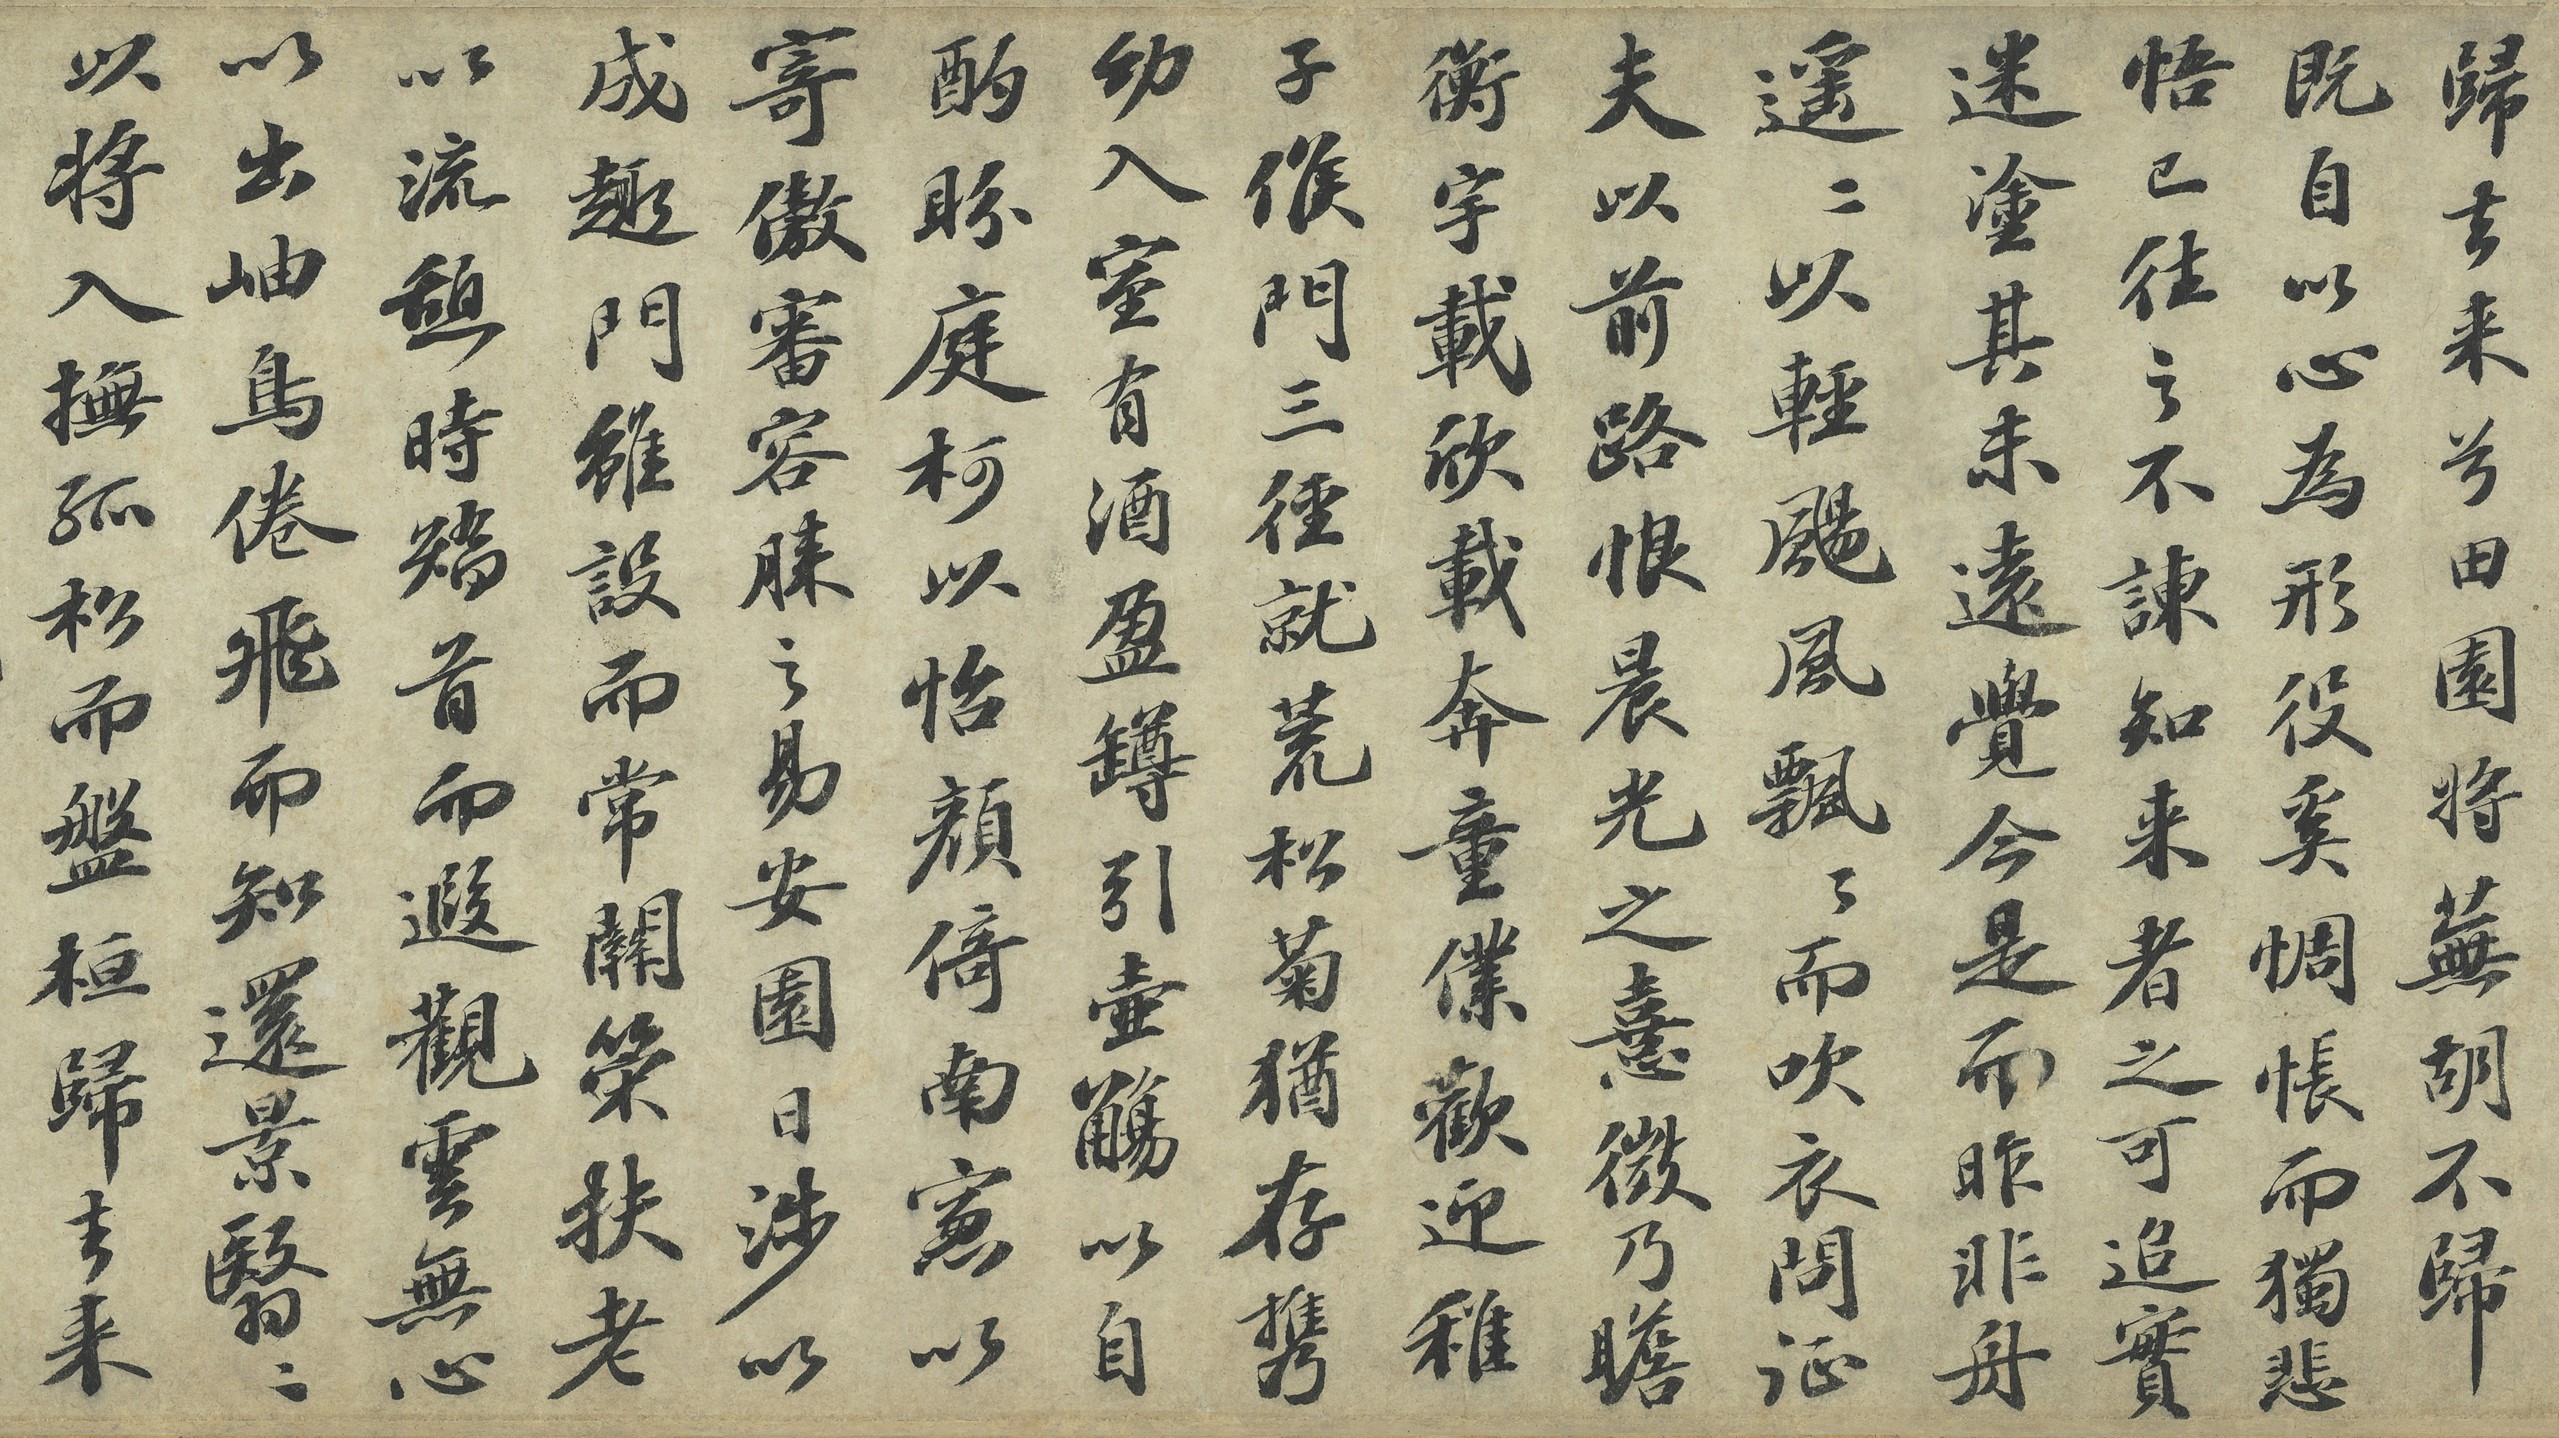 歸去来兮田園將蕪胡不歸
既自以心為形役奚惆悵而獨悲
悟已往之不諫知来者之可追實
迷塗其未遠覺今是而昨非舟
遥〻以輕颺風飄〻而吹衣問征
夫以前路恨晨光之憙微乃瞻
衡宇載欣載奔童僕歡迎稚
子候門三徑就荒松菊猶存携
幼入室有酒盈罇引壺觴以自
酌眄庭柯以怡顔倚南窓以
寄傲審容膝之易安園日涉以
成趣門雖設而常關策扶老
以流憩時矯首而遐觀雲無心
以出岫鳥倦飛而知還景翳〻
以將入撫孤松而盤桓歸去来